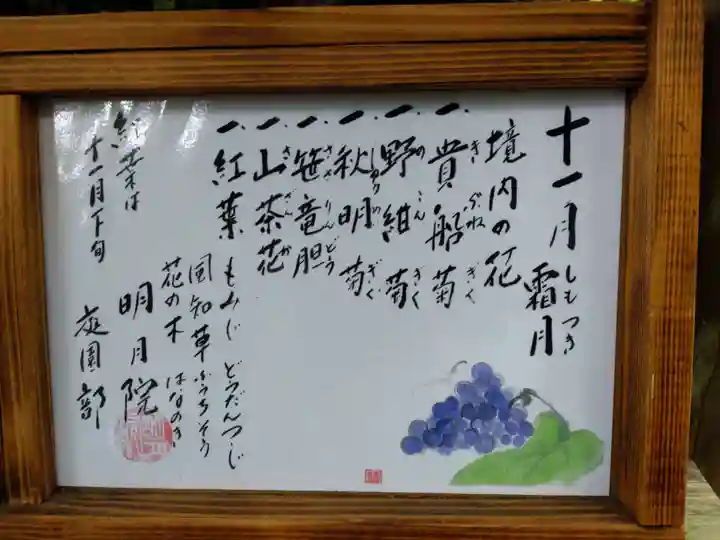 十一月 霜月 しもつき
境内の花
一、貴船菊 きぶねぎく
一、野紺菊 のこんぎく
一、秋明菊 しゅうめいぎく
一、笹竜胆 ささりんどう
一、山茶花 さざんか
一、紅葉 もみじ どうだんつつじ
風知草 ふうちそう
花の木 はなのき
紅葉は
十一月下旬
明月院
庭園部